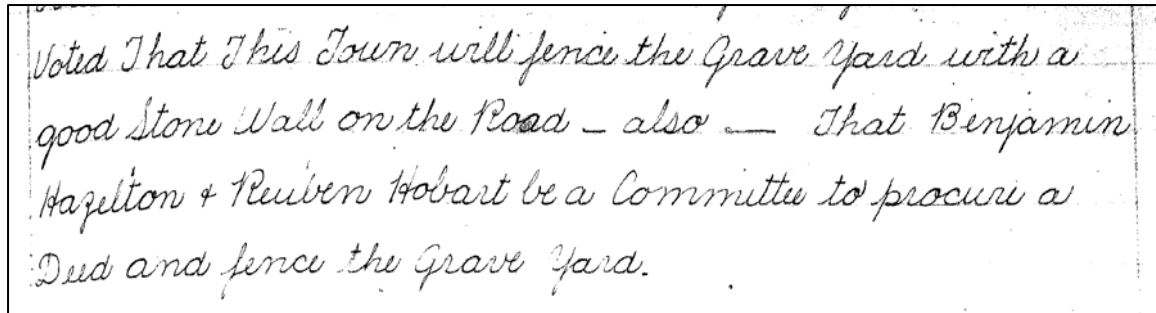 Voted That This Town will fence the Grave Yard with a
good Stone Wall on the Road - also — That Benjamin
Hazelton + Reuben Hobart be a Committee to procure a
Deed and fence the Grave Yard.